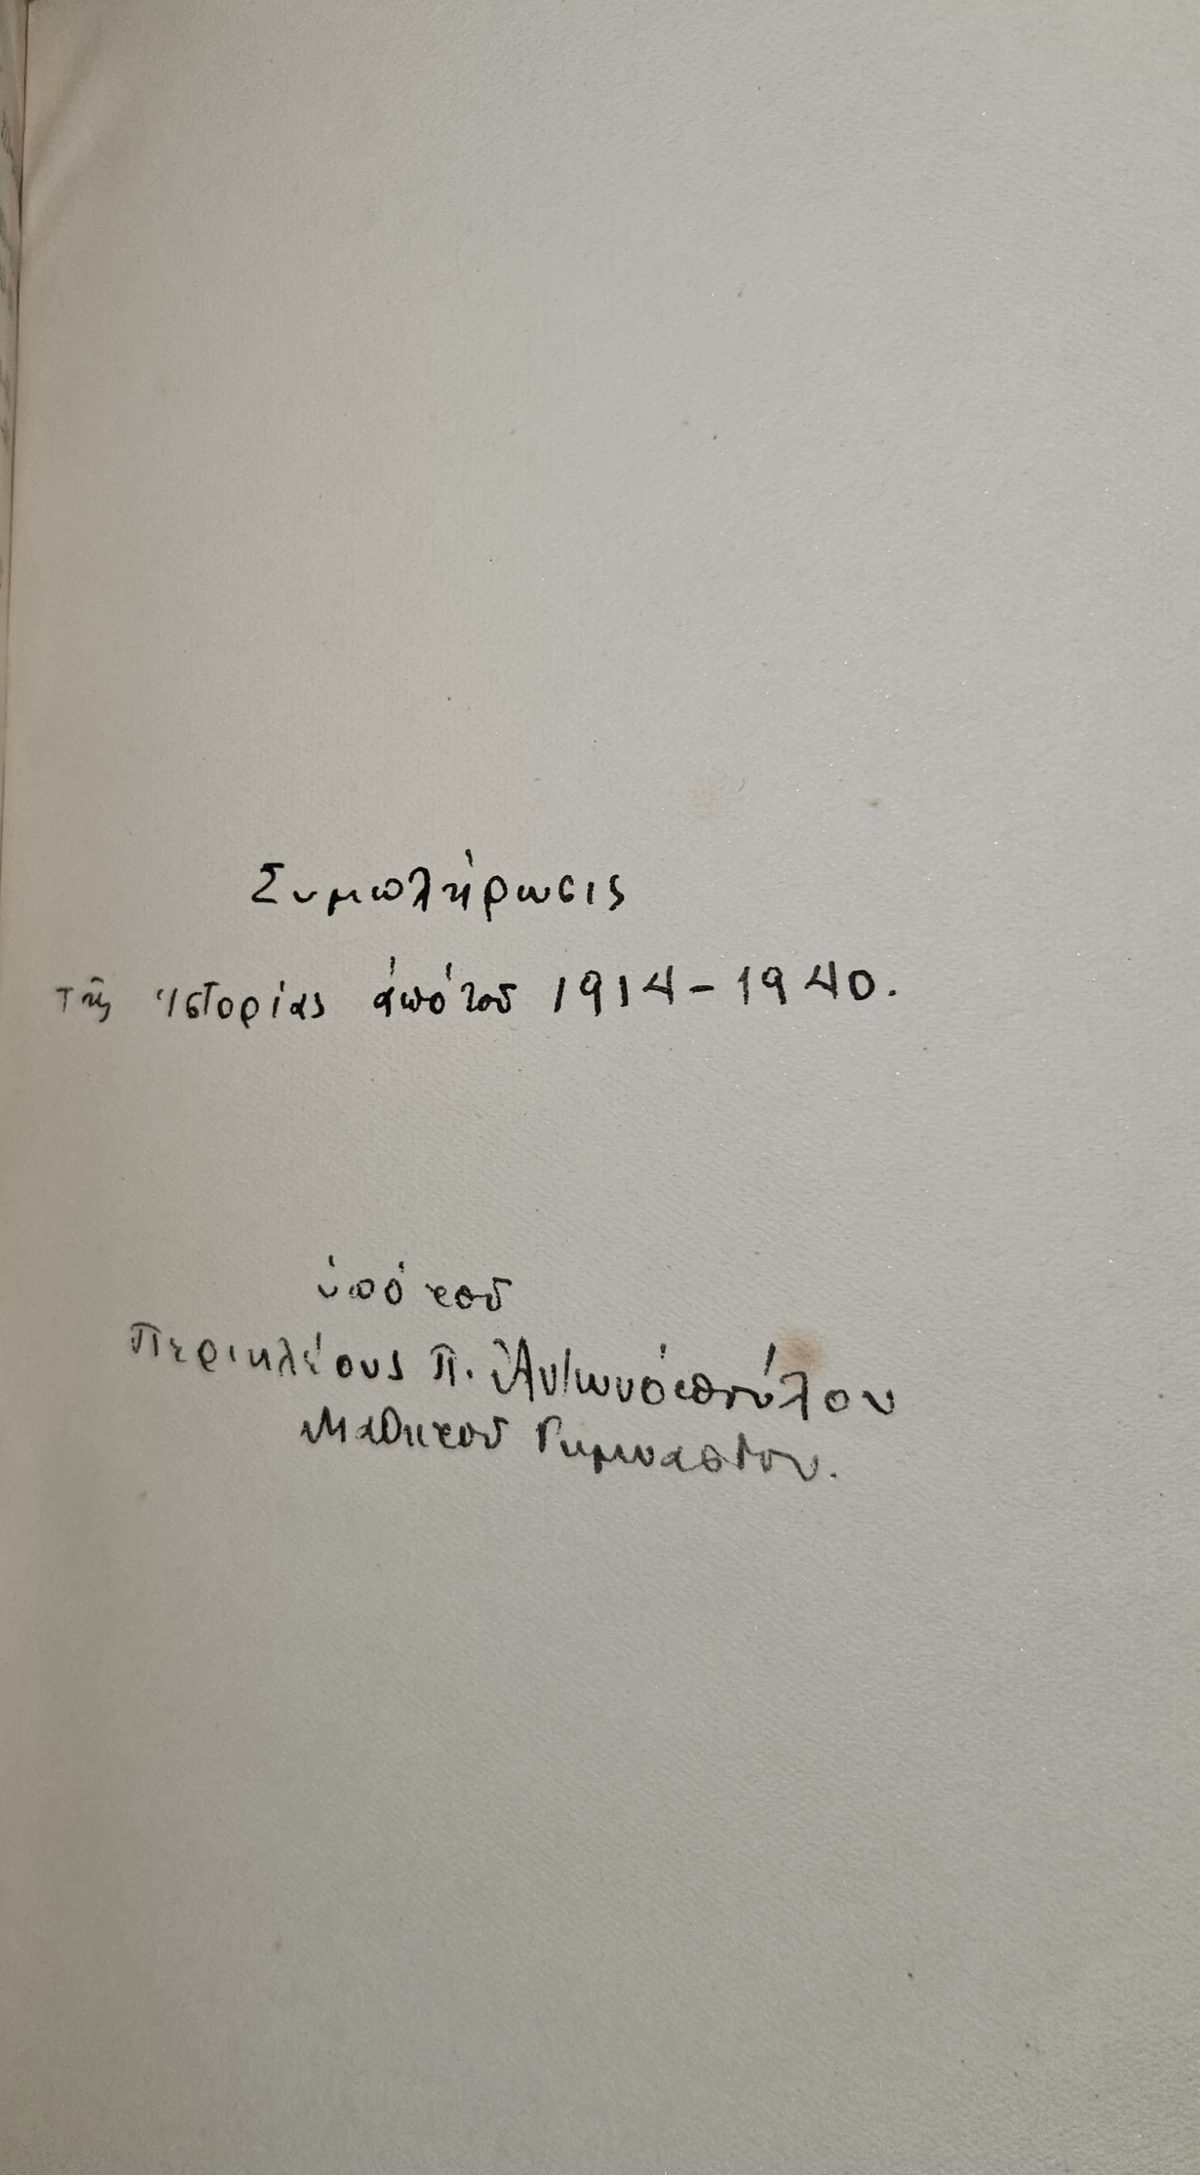 Συμπλήρωσις
τῆς Ἱστορίας ἀπό τοῦ 1914-1940.
ὑπό τοῦ
Περικλέους Π. Ἀντωνοπούλου
Μαθητοῦ Γυμνασίου.